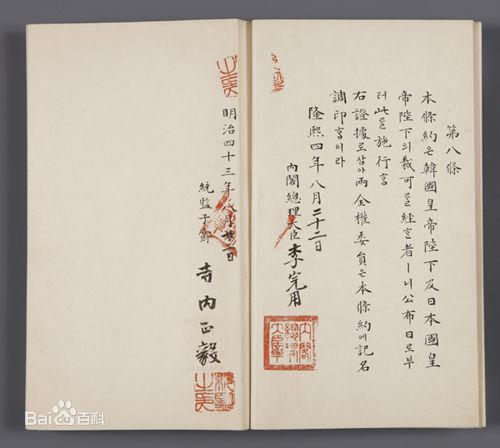 第八條
本條約은韓國皇帝陛下及日本國皇
帝陛下의裁可를經ᄒᆞᆫ者ㅣ니公布日로부
터此를施行홈
右證據로삼아兩全權委員은本條約에記名
調印홈이라
隆熙四年八月二十二日
內閣總理大臣 李完用
內閣總理大臣章
明治四十三年八月二日
統監子爵 寺内正毅
統監之印
Bai百科